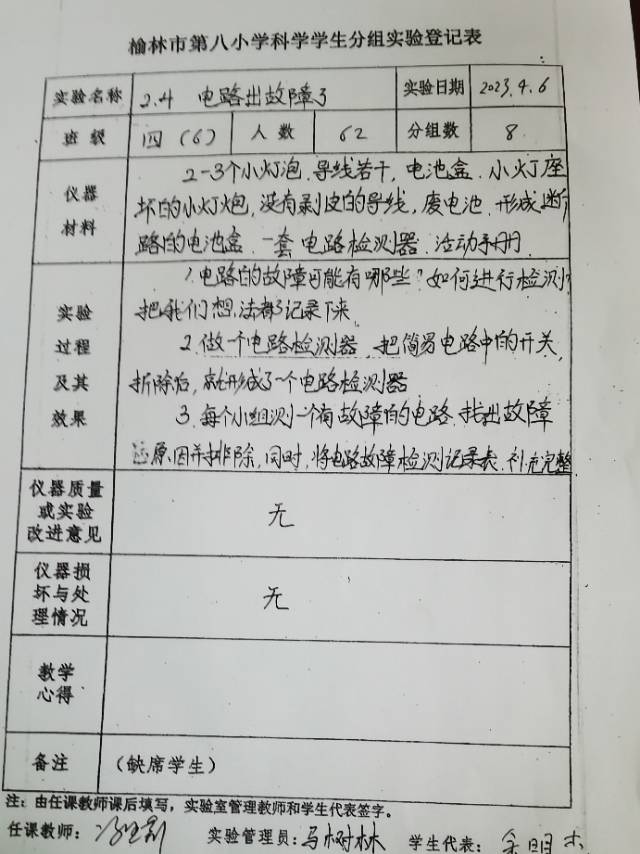 榆林市第八小学科学学生分组实验登记表
实验名称 2.4 电路出故障了 实验日期 2023.4.6
班级 四(6) 人数 62 分组数 8
仪器材料
2-3个小灯泡、导线若干,电池盒、小灯座
坏的小灯炮,没有剥皮的导线,废电池、形成断
路的电池盒、一套电路检测器、活动手册
实验过程及其效果
1.电路的故障可能有哪些?如何进行检测?
把我们想法都记录下来
2.做一个电路检测器,把简易电路中的开关
拆除后,就形成了一个电路检测器
3.每个小组测一个有故障的电路,找出故障
原因并排除,同时,将电路故障检测记录表、补充完整
仪器质量或实验改进意见 无
仪器损坏与处理情况 无
教学心得
备注 (缺席学生)
注:由任课教师课后填写,实验室管理教师和学生代表签字。
任课教师: 实验管理员:马树林 学生代表: